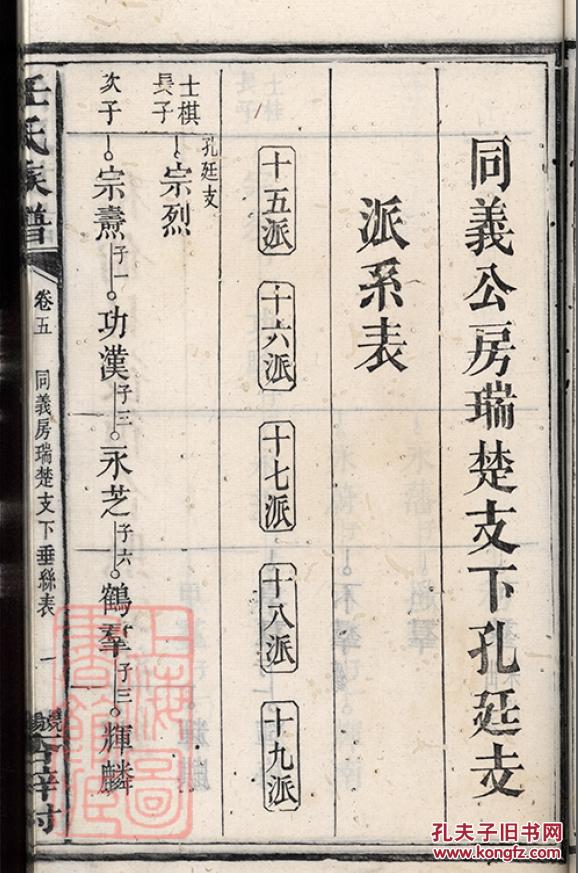 同義公房瑞楚支下孔廷支
派系表
十五派 十六派 十七派 十八派 十九派
士棋長子 孔廷支 宗烈
次子 宗燾 子一 功漢 子三 永芝 子六 鶴羣 子三 輝麟
氏族譜 卷五 同義房瑞楚支下垂絲表 一
上海圖書館藏
孔夫子旧书网
www.kongfz.com